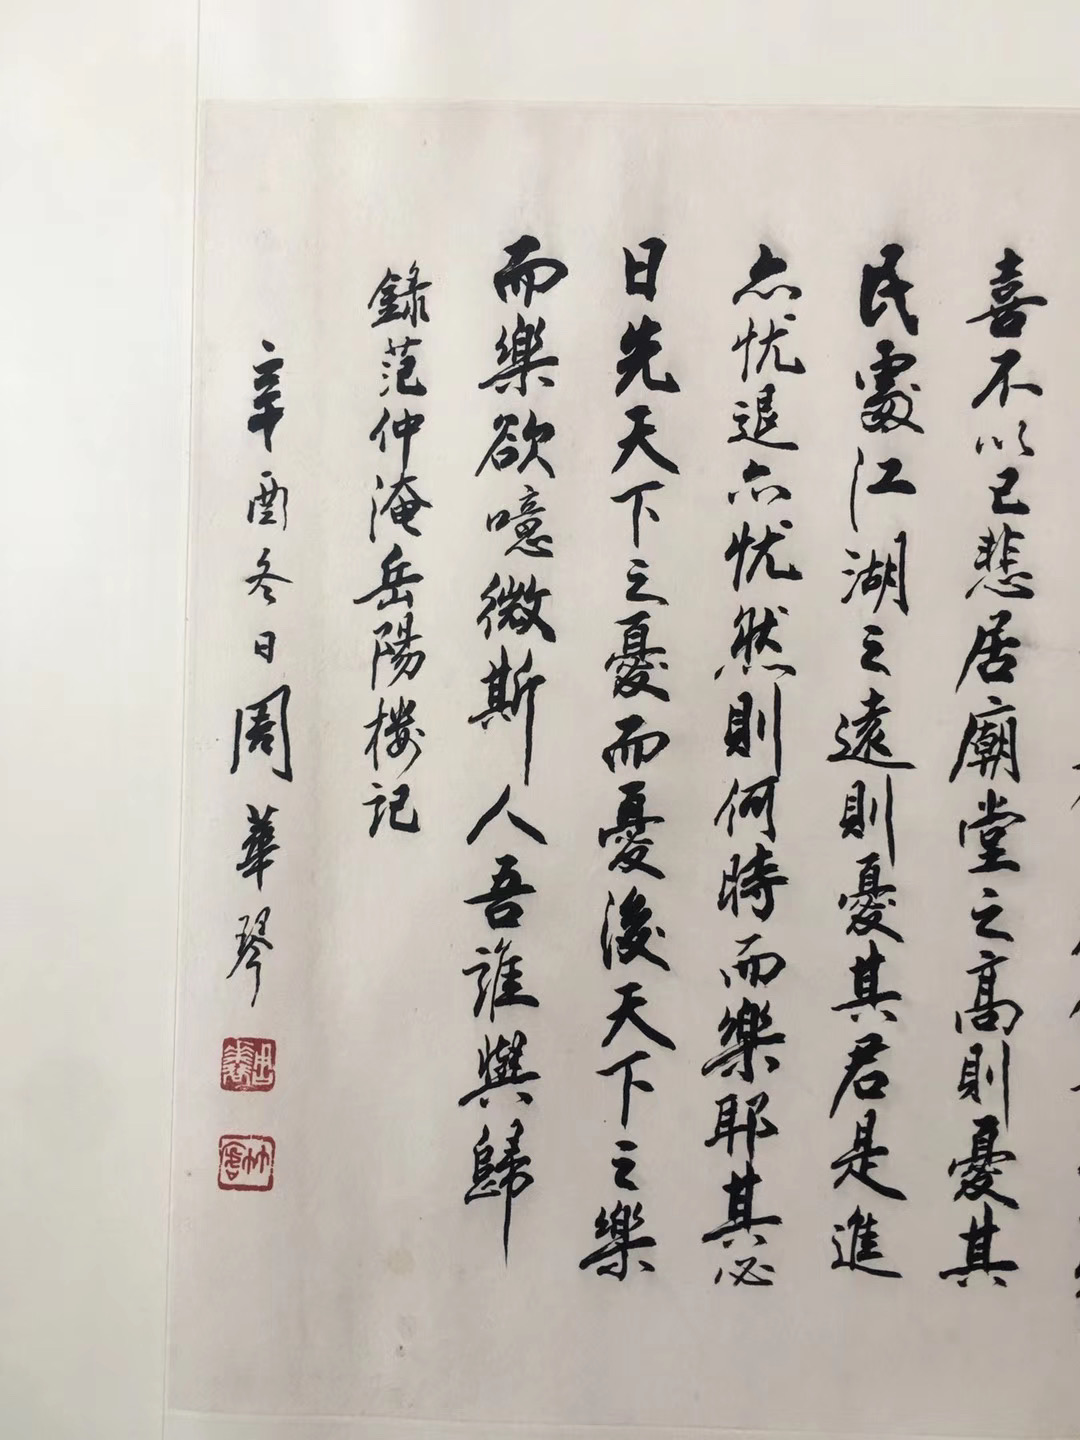 喜不以己悲居廟堂之高則憂其
民處江湖之遠則憂其君是進
亦忧退亦忧然則何時而樂耶其必
曰先天下之憂而憂後天下之樂
而樂欤噫微斯人吾誰與歸
錄范仲淹岳陽楼記
辛酉冬日周華琴